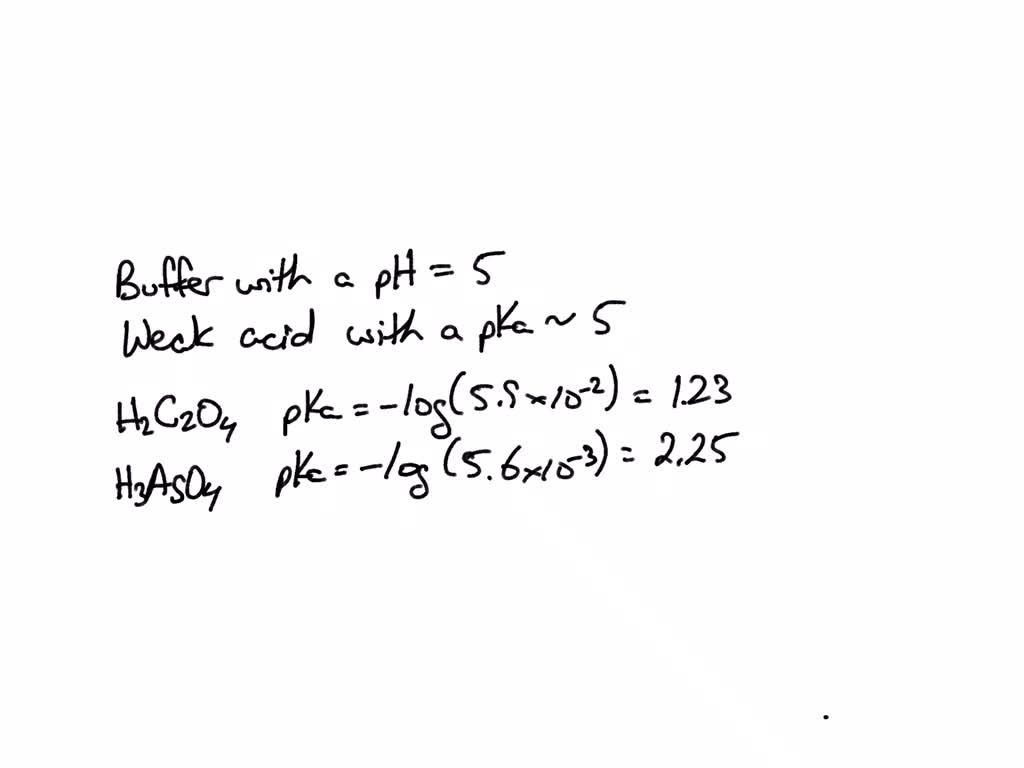 Buffer with a pH = 5
Weak acid with a pKa ~ 5
H₂C₂O₄ pKa = -log(5.9×10⁻²) = 1.23
H₃AsO₄ pKa = -log(5.6×10⁻³) = 2.25